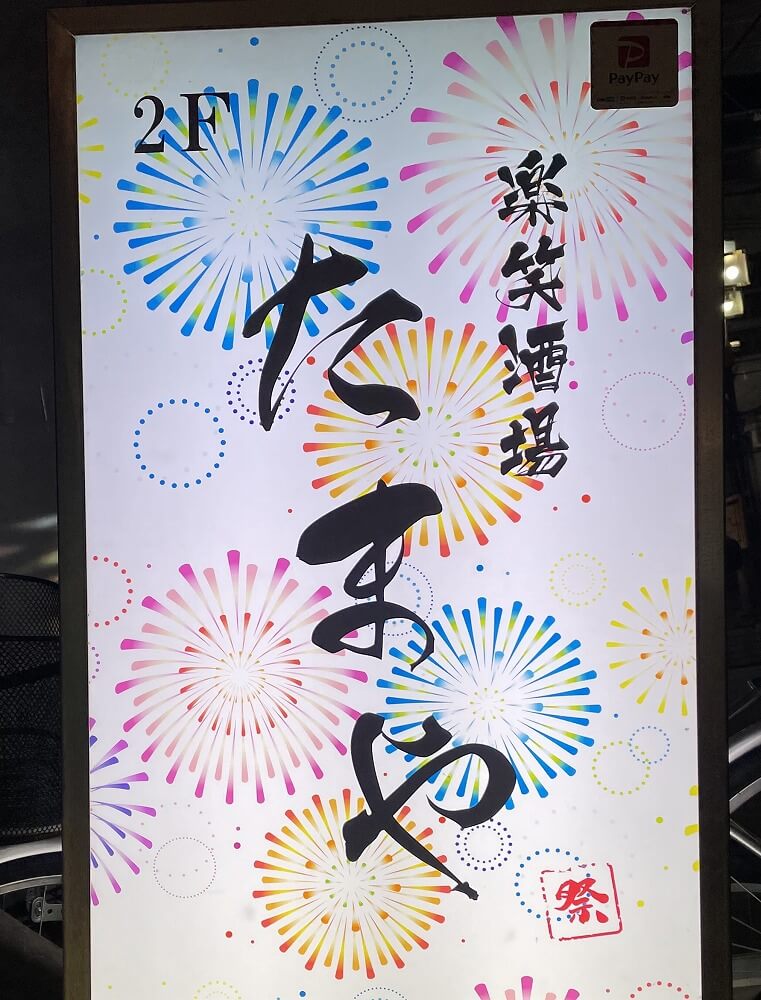 2F
PayPay
楽笑酒場
たまや
祭